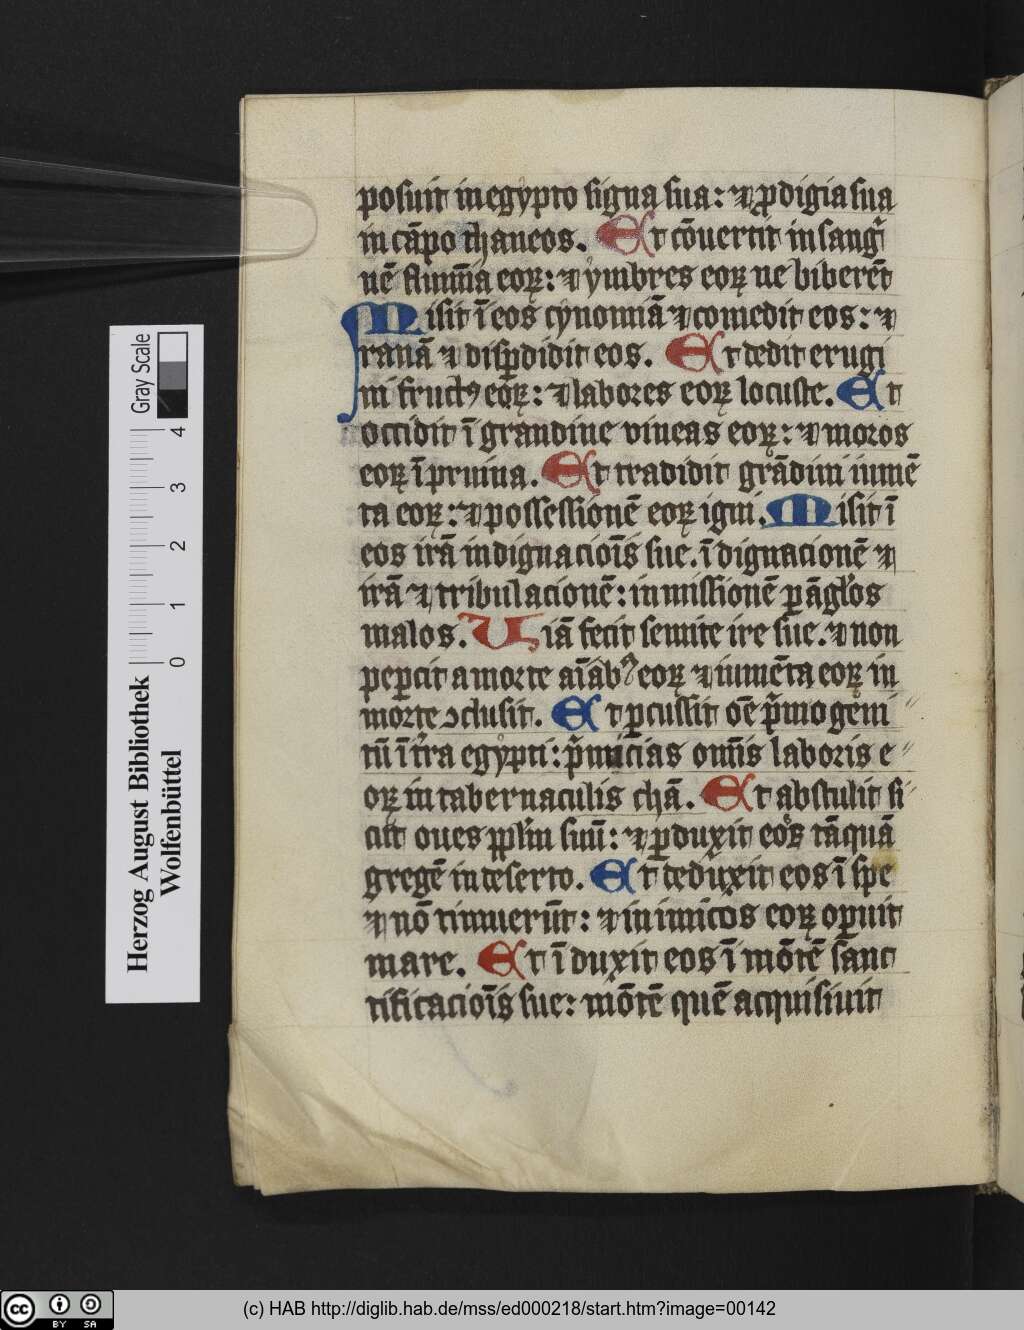 posuit in egypto signa sua: ⁊ ꝓdigia sua
in cāpo thaneos. Et cōuertit in sangͥ
nē flumīa eoꝝ: ⁊ ymbres eoꝝ ne biberēt
Misit ī eos cynomiā ⁊ comedit eos: ⁊
ranā ⁊ disꝑdidit eos. Et dedit erugi
ni fructꝰ eoꝝ: ⁊ labores eoꝝ locuste. Et
occidit ī grandine vineas eoꝝ: ⁊ moros
eoꝝ ī pruina. Et tradidit grādini iumē
ta eoꝝ: ⁊ possessionē eoꝝ igni. Misit ī
eos irā indignacioīs sue. īdignacionē ⁊
irā ⁊ tribulacionē: inmissionē ꝑ āglos
malos. Uiā fecit semite ire sue. ⁊ non
peꝑcit a morte aīabꝰ eoꝝ ⁊ iumēta eoꝝ in
morte ↄclusit. Et ꝑcussit oē pͥmogeni
tū ī tr̄a egypti: pͥmicias om̄is laboris e
oꝝ in tabernaculis chā. Et abstulit si
cut oues ppl̄m suū: ⁊ ꝑduxit eos tāquā
gregē in deserto. Et deduxit eos ī spe
⁊ nō timuerūt: ⁊ inimicos eoꝝ oꝑuit
mare. Et īduxit eos ī mōtē sanc
tificacioīs sue: mōtē quē acquisiuit
Herzog August Bibliothek
Wolfenbüttel
Gray Scale
0 1 2 3 4
cc BY SA
(c) HAB http://diglib.hab.de/mss/ed000218/start.htm?image=00142